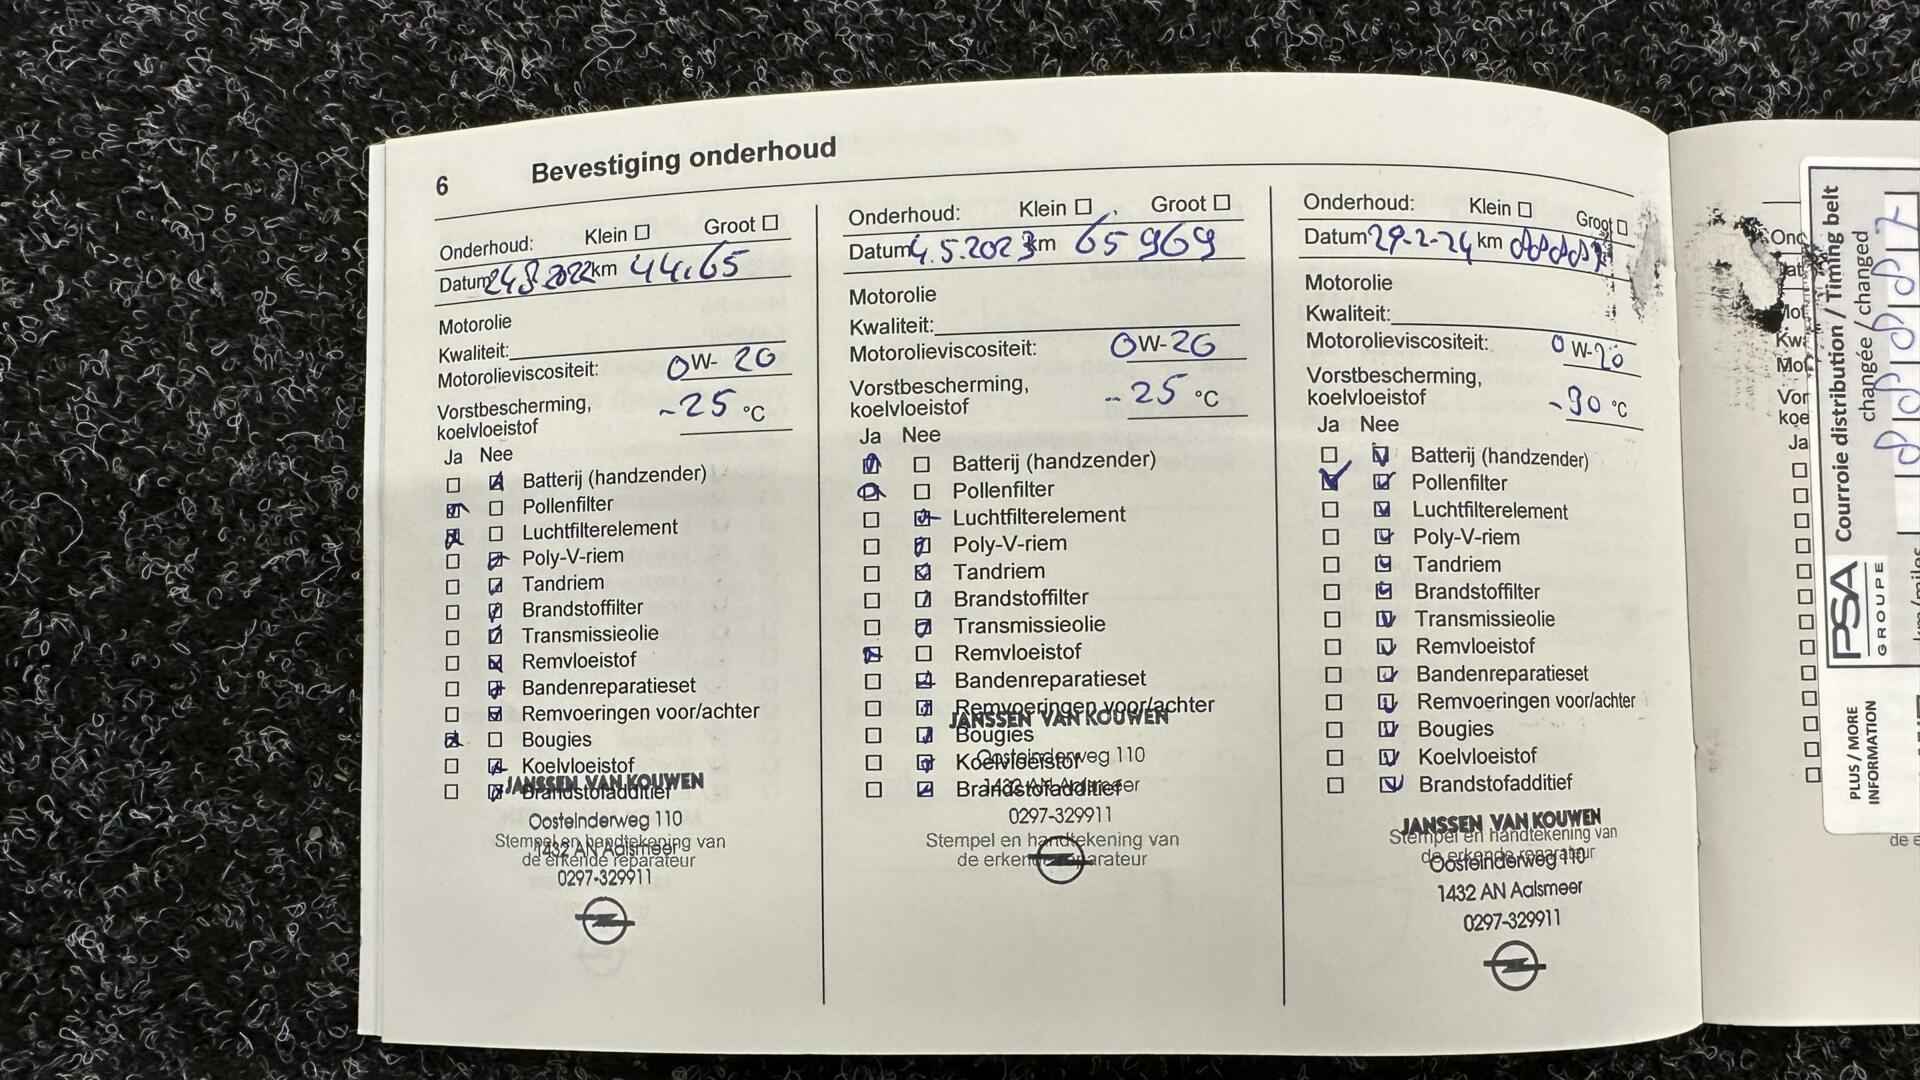 6 Bevestiging onderhoud
Onderhoud: Klein Groot
Datum 24.8.2022 km 44.65
Motorolie
Kwaliteit:
Motorolieviscositeit: 0W-20
Vorstbescherming,
koelvloeistof -25 °C
Ja Nee
Batterij (handzender)
Pollenfilter
Luchtfilterelement
Poly-V-riem
Tandriem
Brandstoffilter
Transmissieolie
Remvloeistof
Bandenreparatieset
Remvoeringen voor/achter
Bougies
Koelvloeistof
Brandstofadditief
JANSSEN VAN KOUWEN
Oosteinderweg 110
Stempel en handtekening van
1432 AN Aalsmeer
de erkende reparateur
0297-329911
Onderhoud: Klein Groot
Datum 4.5.2023 km 65969
Motorolie
Kwaliteit:
Motorolieviscositeit: 0W-20
Vorstbescherming,
koelvloeistof -25 °C
Ja Nee
Batterij (handzender)
Pollenfilter
Luchtfilterelement
Poly-V-riem
Tandriem
Brandstoffilter
Transmissieolie
Remvloeistof
Bandenreparatieset
Remvoeringen voor/achter
JANSSEN VAN KOUWEN
Bougies
Oosteinderweg 110
Koelvloeistof
1432 AN Aalsmeer
Brandstofadditief
0297-329911
Stempel en handtekening van
de erkende reparateur
Onderhoud: Klein Groot
Datum 29-2-24 km
Motorolie
Kwaliteit:
Motorolieviscositeit: 0W-20
Vorstbescherming,
koelvloeistof -30 °C
Ja Nee
Batterij (handzender)
Pollenfilter
Luchtfilterelement
Poly-V-riem
Tandriem
Brandstoffilter
Transmissieolie
Remvloeistof
Bandenreparatieset
Remvoeringen voor/achter
Bougies
Koelvloeistof
Brandstofadditief
JANSSEN VAN KOUWEN
Stempel en handtekening van
de erkende reparateur
Oosteinderweg 110
1432 AN Aalsmeer
0297-329911
Ja
Courroie distribution / Timing belt
changée / changed
88887
PSA
GROUPE
km/miles
PLUS / MORE
INFORMATION